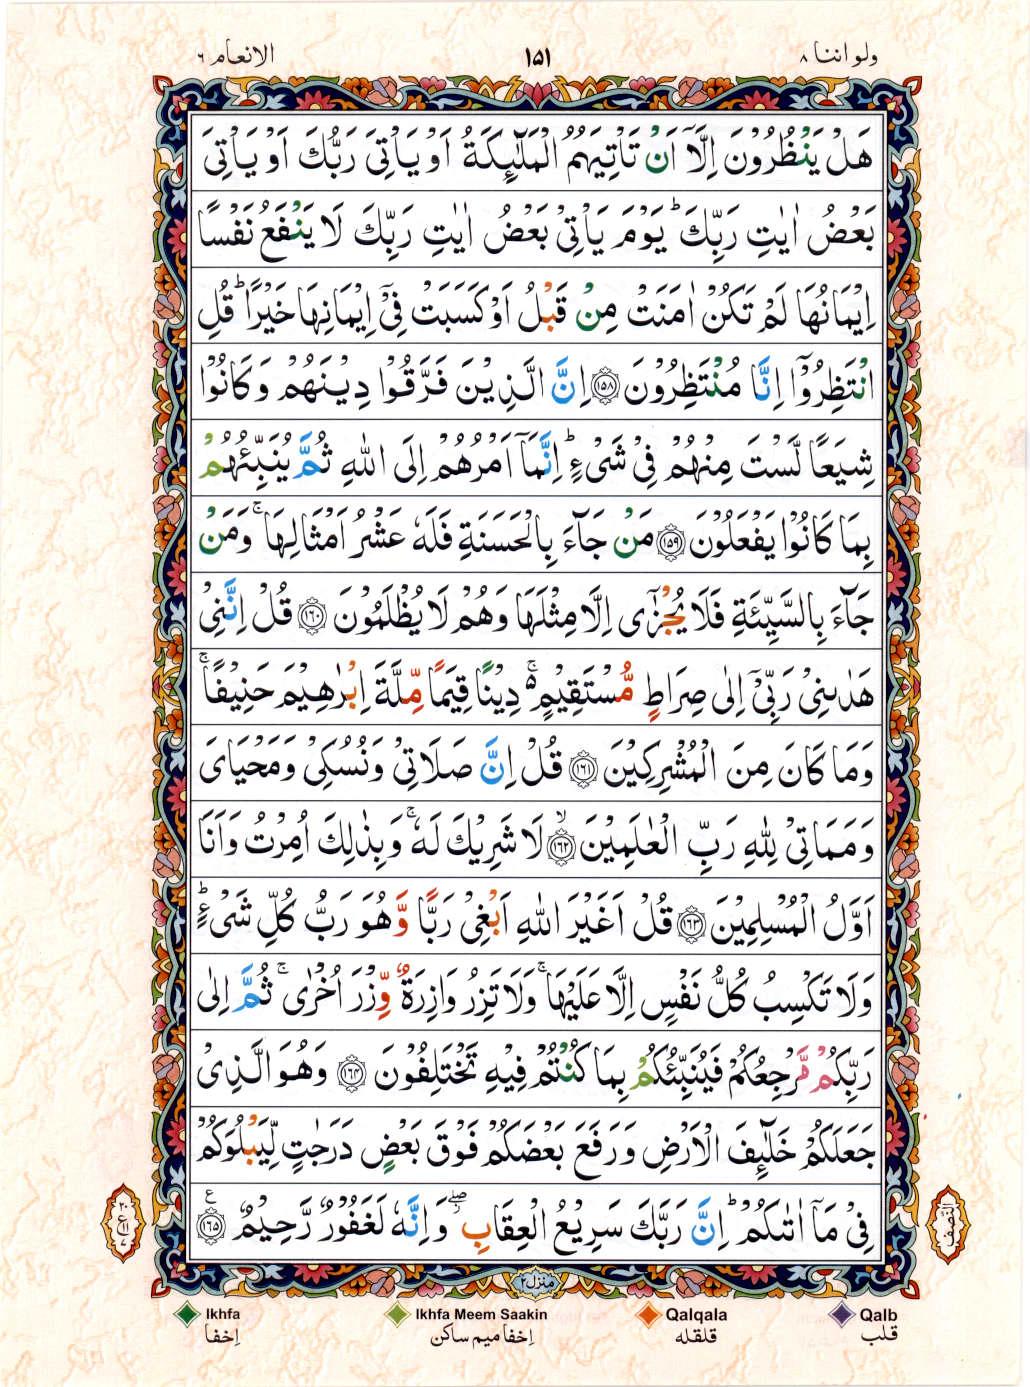 ولو اننا ٨
١٥١
الانعام ٦
هَلْ يَنْظُرُوْنَ اِلَّاۤ اَنْ تَاْتِيَهُمُ الْمَلٰٓئِكَةُ اَوْ يَاْتِيَ رَبُّكَ اَوْ يَاْتِيَ
بَعْضُ اٰيٰتِ رَبِّكَ ؕ يَوْمَ يَاْتِيْ بَعْضُ اٰيٰتِ رَبِّكَ لَا يَنْفَعُ نَفْسًا
اِيْمَانُهَا لَمْ تَكُنْ اٰمَنَتْ مِنْ قَبْلُ اَوْ كَسَبَتْ فِيْۤ اِيْمَانِهَا خَيْرًا ؕ قُلِ
انْتَظِرُوْۤا اِنَّا مُنْتَظِرُوْنَ ﴿١٥٨﴾ اِنَّ الَّذِيْنَ فَرَّقُوْا دِيْنَهُمْ وَكَانُوْا
شِيَعًا لَّسْتَ مِنْهُمْ فِيْ شَيْءٍ ؕ اِنَّمَاۤ اَمْرُهُمْ اِلَى اللّٰهِ ثُمَّ يُنَبِّئُهُمْ
بِمَا كَانُوْا يَفْعَلُوْنَ ﴿١٥٩﴾ مَنْ جَآءَ بِالْحَسَنَةِ فَلَهٗ عَشْرُ اَمْثَالِهَا ۚ وَمَنْ
جَآءَ بِالسَّيِّئَةِ فَلَا يُجْزٰۤى اِلَّا مِثْلَهَا وَهُمْ لَا يُظْلَمُوْنَ ﴿١٦٠﴾ قُلْ اِنَّنِيْ
هَدٰىنِيْ رَبِّيْۤ اِلٰى صِرَاطٍ مُّسْتَقِيْمٍ ۚ دِيْنًا قِيَمًا مِّلَّةَ اِبْرٰهِيْمَ حَنِيْفًا ۚ
وَمَا كَانَ مِنَ الْمُشْرِكِيْنَ ﴿١٦١﴾ قُلْ اِنَّ صَلَاتِيْ وَنُسُكِيْ وَمَحْيَايَ
وَمَمَاتِيْ لِلّٰهِ رَبِّ الْعٰلَمِيْنَ ﴿١٦٢﴾ ۙ لَا شَرِيْكَ لَهٗ ۚ وَبِذٰلِكَ اُمِرْتُ وَاَنَا
اَوَّلُ الْمُسْلِمِيْنَ ﴿١٦٣﴾ قُلْ اَغَيْرَ اللّٰهِ اَبْغِيْ رَبًّا وَّهُوَ رَبُّ كُلِّ شَيْءٍ ؕ
وَلَا تَكْسِبُ كُلُّ نَفْسٍ اِلَّا عَلَيْهَا ۚ وَلَا تَزِرُ وَازِرَةٌ وِّزْرَ اُخْرٰى ۚ ثُمَّ اِلٰى
رَبِّكُمْ مَّرْجِعُكُمْ فَيُنَبِّئُكُمْ بِمَا كُنْتُمْ فِيْهِ تَخْتَلِفُوْنَ ﴿١٦٤﴾ وَهُوَ الَّذِيْ
جَعَلَكُمْ خَلٰٓئِفَ الْاَرْضِ وَرَفَعَ بَعْضَكُمْ فَوْقَ بَعْضٍ دَرَجٰتٍ لِّيَبْلُوَكُمْ
فِيْ مَاۤ اٰتٰىكُمْ ؕ اِنَّ رَبَّكَ سَرِيْعُ الْعِقَابِ ۖ وَاِنَّهٗ لَغَفُوْرٌ رَّحِيْمٌ ﴿١٦٥﴾ ع
النصف
ع
منزل ٢
Ikhfa
Ikhfa Meem Saakin
Qalqala
Qalb
اِخفا
اِخفا میم ساکن
قلقله
قلب